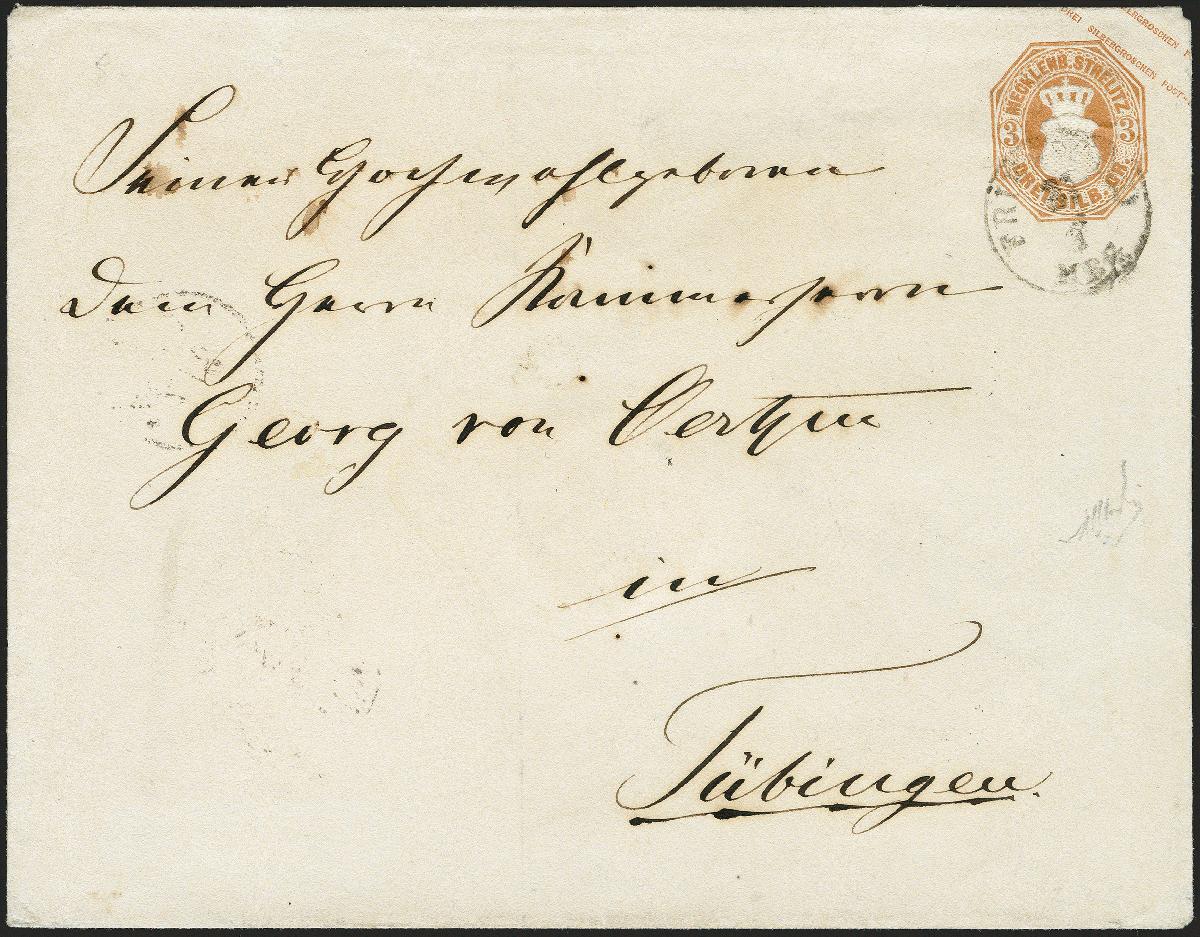 DREI SILBERGROSCHEN POST-
MECKLENB. STRELITZ
3 3
DREI SILB. GR.
Seiner Hochwohlgeboren
dem Herrn Kammerherrn
Georg von Oertzen
in
Tübingen.